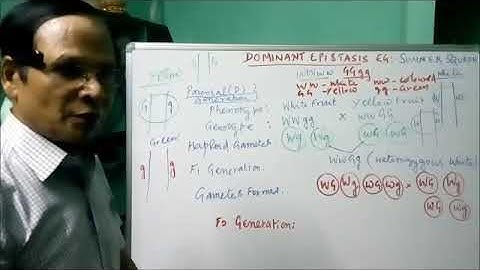 DOMINANT EPISTASIS EG: SUMMER SQUASH
WWww GGgg
WW - White ww - coloured
GG - Yellow gg - Green
White
Yellow
G g
Parental (P)
Generation
Phenotype: White Fruit Yellow Fruit
Genotype: WWgg X wwGG
Haploid Gametes Wg Wg wG wG
Green
g g
F1 Generation. WwGg (Heterozygous White)
Gametes Formed. WG Wg wG wg X WG Wg
wG wg
F2 Generation: